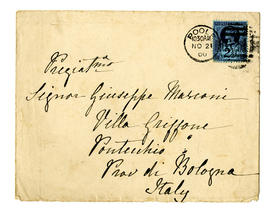 POOLE
10 30 AM
NO 21
00
Pregiatmo
Signor Giuseppe Marconi
Villa Griffone
Pontecchio
Prov di Bologna
Italy